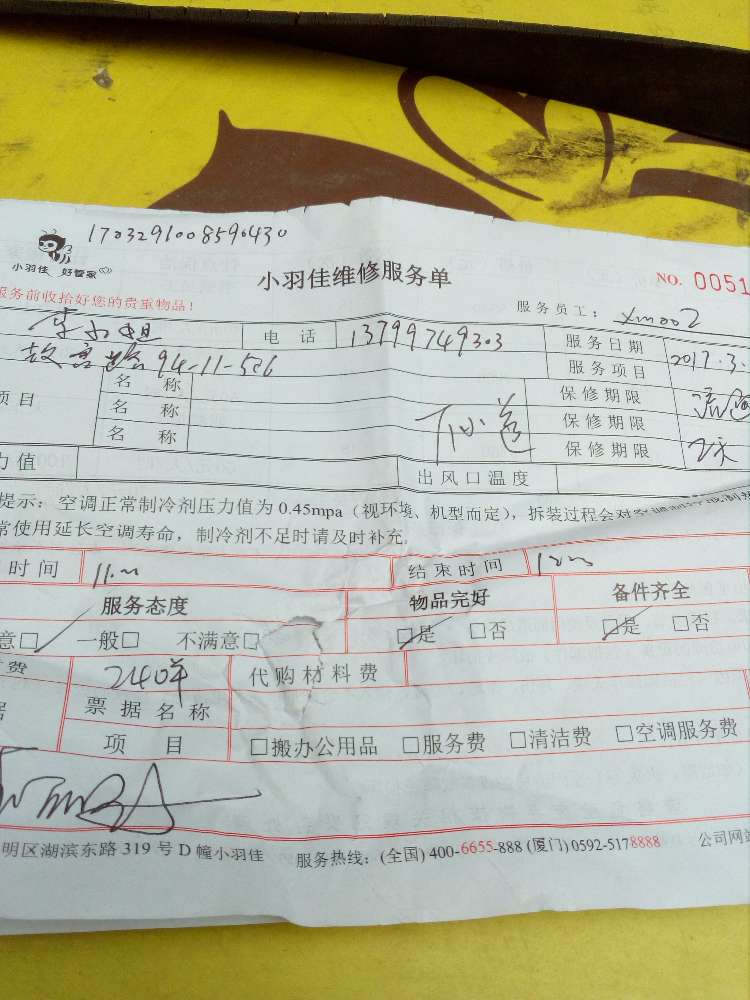 1703291008590430
小羽佳 好管家
小羽佳维修服务单
NO. 0051
服务前收拾好您的贵重物品!
服务员工: xm002
电 话 13799749303 服务日期 2017.3.
94-11-506 服务项目
名 称 保修期限
项目 名 称 保修期限
名 称 保修期限
力值 出风口温度
提示: 空调正常制冷剂压力值为 0.45mpa (视环境、机型而定), 拆装过程会对空调
常使用延长空调寿命, 制冷剂不足时请及时补充。
时间 结束时间
服务态度 物品完好 备件齐全
意□ 一般□ 不满意□ □是 □否 □是 □否
费 240 代购材料费
据 票据名称
项 目 □搬办公用品 □服务费 □清洁费 □空调服务费
明区湖滨东路 319 号 D 幢小羽佳 服务热线: (全国) 400-6655-888 (厦门) 0592-5178888 公司网站